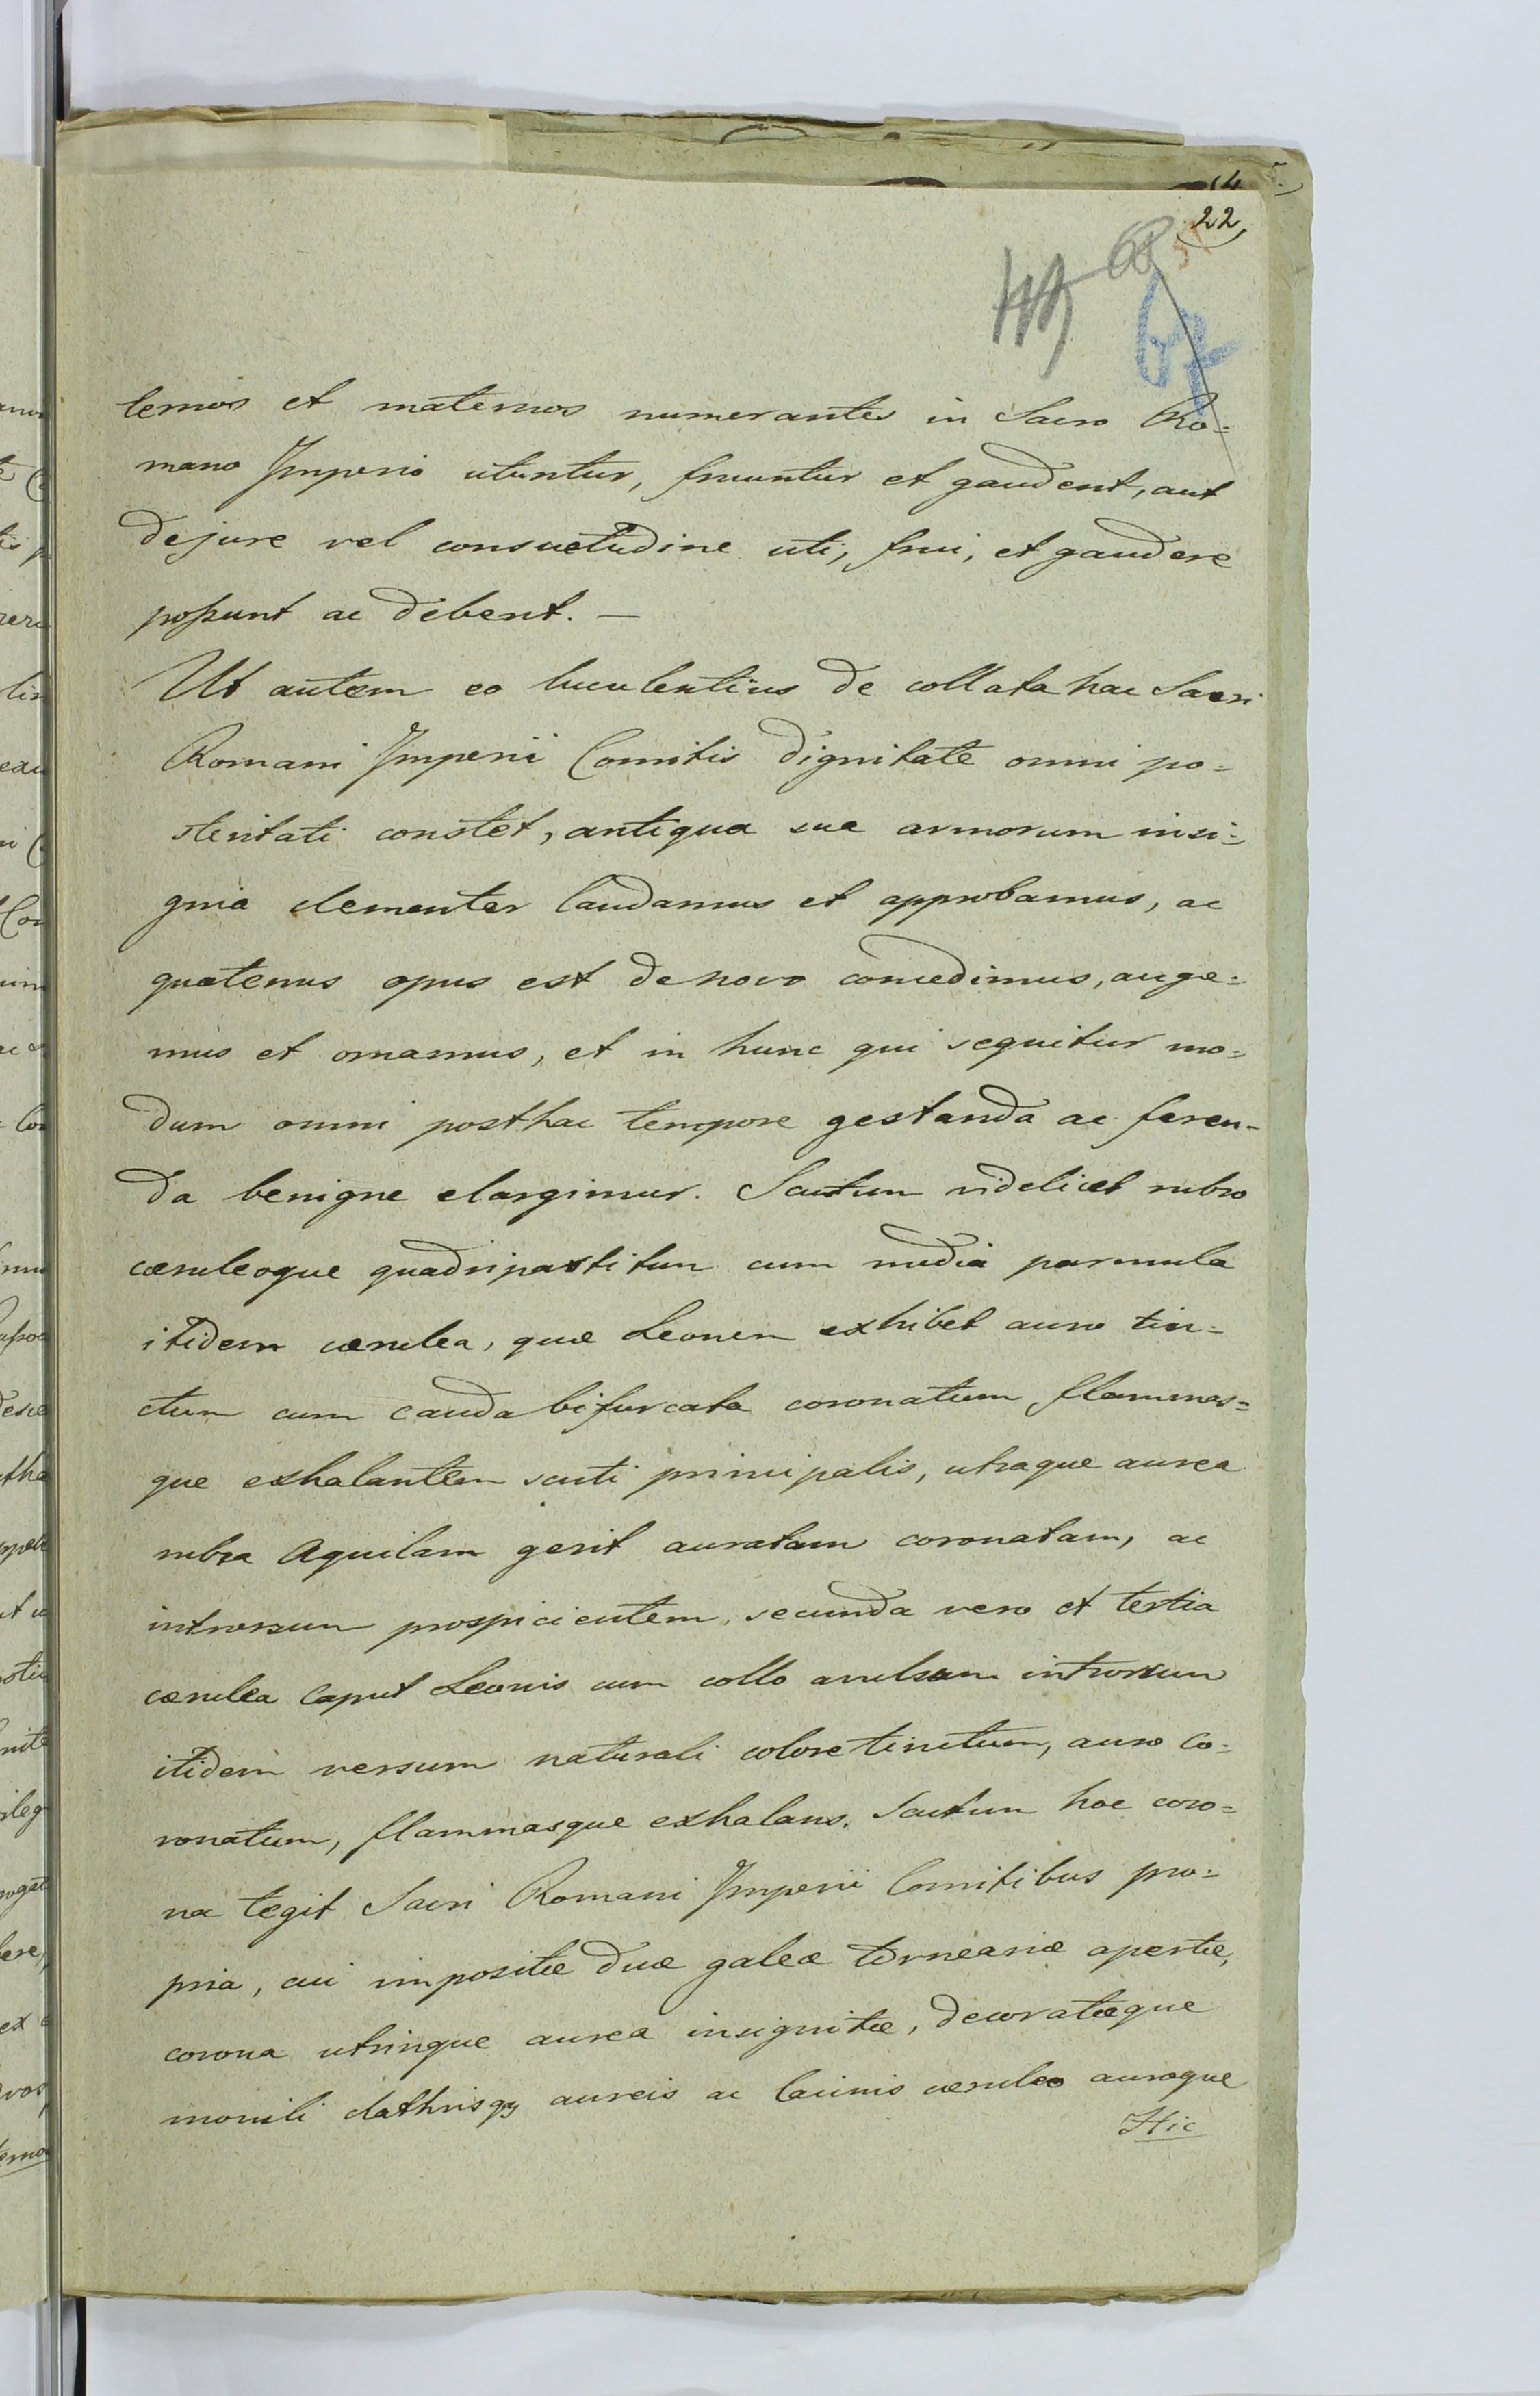 22
67
ternos et maternos numerantes in Sacro Ro=
mano Jmperio utuntur, fruuntur et gaudent, aut
dejure vel consuetudine uti, frui, et gaudere
poßunt ac debent. —
Ut autem eo luculentius de collata hac Sacri
Romani Jmperii Comitis dignitate omni po=
steritati constet, antiqua sua armorum insi=
gnia clementer laudamus et approbamus, ac
quatenus opus est denovo concedimus, auge=
mus et ornamus, et in hunc qui sequitur mo=
dum omni posthac tempore gestanda ac feren-
da benigne elargimur. Scutum videlicet rubro
cæruleoque quadripartitum cum media parmula
itidem cærulea, quæ Leonem exhibet auro tin=
ctum cum cauda bifurcata coronatum flammas=
que exhalantem scuti principalis, utraque aurea
rubra Aquilam gerit auratam coronatam, ac
introrsum prospicientem, secunda vero et tertia
cærulea Caput Leonis cum collo avulsum introrsum
itidem versum naturali colore tinctum, auro co=
ronatum, flammasque exhalans. Scutum hoc coro=
na tegit Sacri Romani Jmperii Comitibus pro=
pria, cui impositæ duæ galeæ torneariæ apertæ,
corona utrinque aurea insignitæ, decoratæque
monili clathrisq; aureis ac laciniis cæruleo auroque
Hic